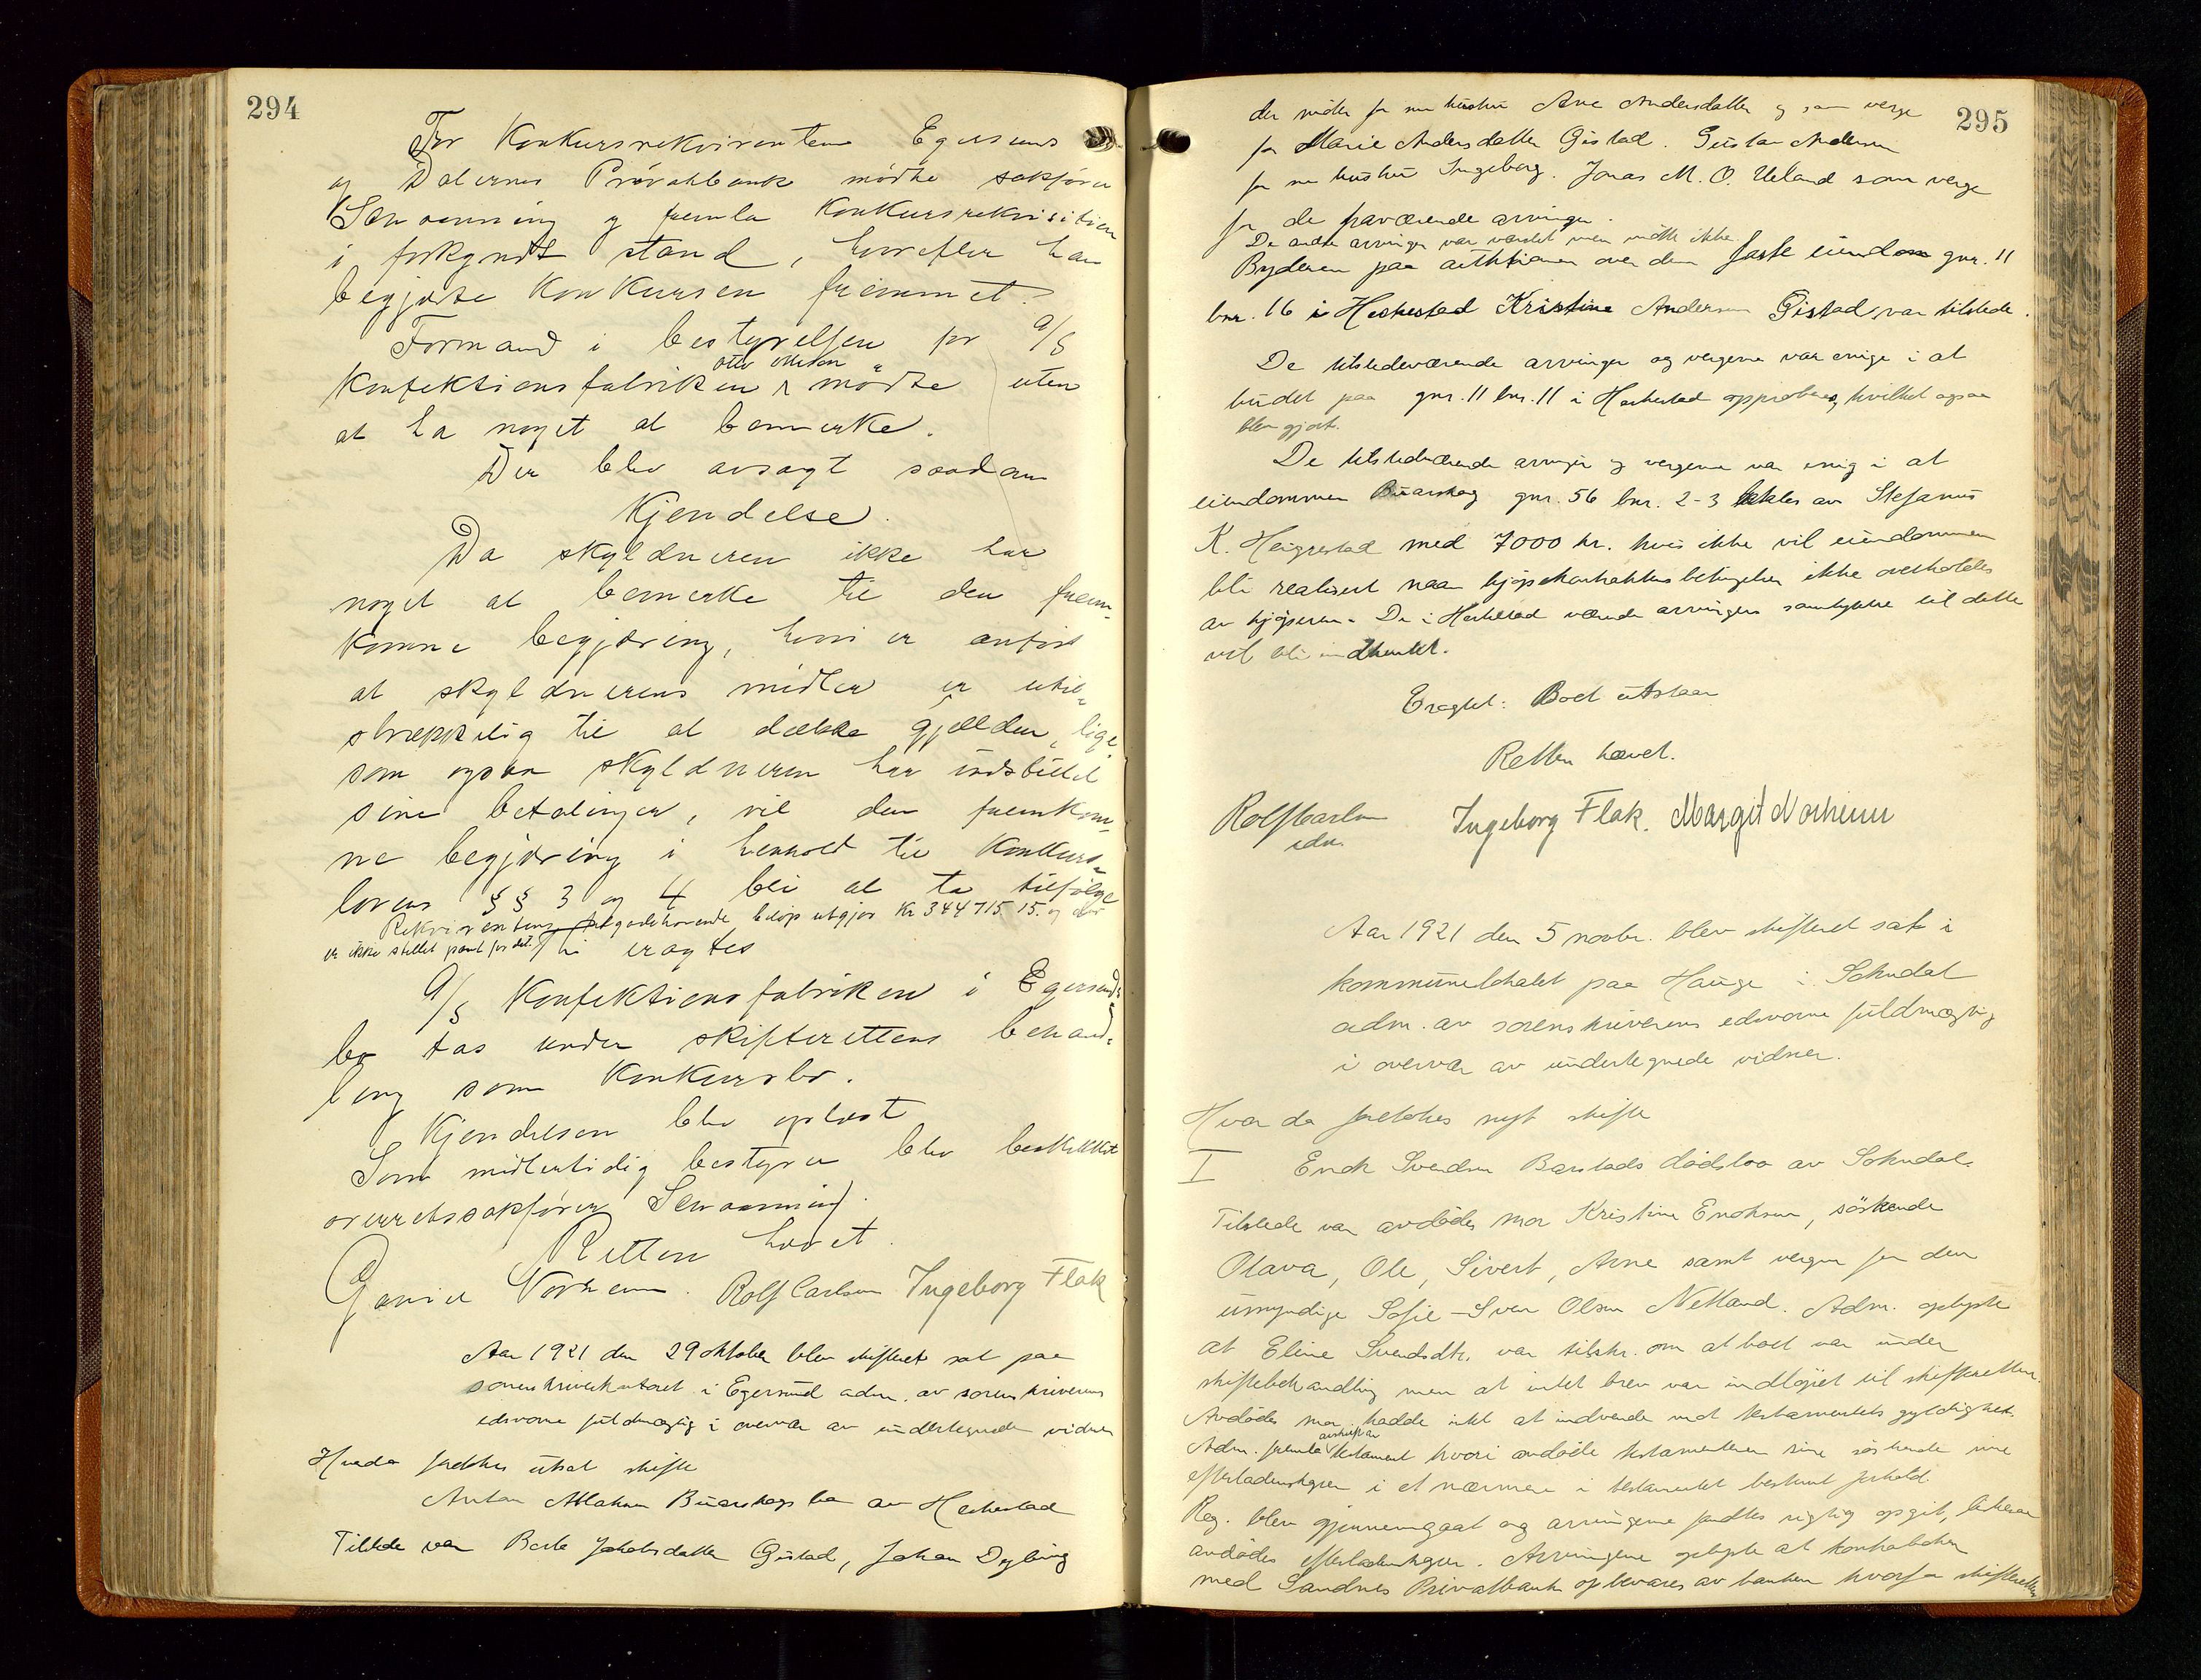 294
For Konkursrekvirenten Egersunds
og Dalernes Privatbank mødte sakfører
og fremla Konkursrekvisition
i forkyndt stand, hvorefter han
begjærte Konkursen fremmet.
Formand i bestyrelsen for A/S
Konfektionsfabriken mødte uten
at ha noget at bemerke.
Der blev avsagt saadan
Kjendelse.
Da skyldneren ikke har
noget at bemerke til den frem-
komne begjæring, hvori er anført
at skyldnerens midler er util-
strækkelig til at dække gjælden, lige
som ogsaa skyldneren har indstillet
sine betalinger, vil den fremkom-
ne begjæring i henhold til Konkurs-
lovens §§ 3 og 4 bli at ta tilfølge
Rekvirentens tilgodehavende beløp utgjør Kr 344715.15. og der
er ikke stillet pant for det. Thi eragtes
A/S Konfektionsfabriken i Egersunds
bo tas under skifterettens behand-
ling som Konkursbo.
Kjendelsen blev oplæst
Som midlertidig bestyrer blev beskikket
overretssakfører
Retten hævet.
Norheim. Rolf Carlsen Ingeborg Flak
Aar 1921 den 29 oktober blev skifteret sat paa
sorenskriverkontoret i Egersund adm. av sorenskriverens
edsvorne fuldmægtig i overvær av undertegnede vidner
Hvorda foretokes utsat skifte
Anton Buarskogs bo av Heskestad
Tilstede var Berte Jakobsdatter Gistad, Johan Dybing
295
der møtte for sin hustru Ane Andersdatter og som verge
for Marie Andersdatter Gistad. Gustav Andersen
for sin hustru Ingeborg. Jonas M. O. Ueland som verge
for de fraværende arvinger.
De andre arvinger var varslet men møtte ikke.
Byderen paa auktionen over den faste eiendom gnr. 11
bnr. 16 i Heskestad Kristine Andersen Gistad var tilstede.
De tilstedeværende arvinger og vergerne var enige i at
budet paa gnr. 11 bnr. 11 i Heskestad approberes, hvilket ogsaa
blev gjort.
De tilstedeværende arvinger og vergerne var enig i at
eiendommen Buarskog gnr. 56 bnr. 2-3 av Stefanus
K. Heigrestad med 7000 kr. hvis ikke vil eiendommen
bli realisert naar kjøpekontraktens betingelser ikke overholdes
av kjøperen. De i Heskestad værende arvingers samtykke til dette
vil bli indhentet.
Eragtet: Boet utstaar
Retten hævet.
Rolf Carlsen Ingeborg Flak. Margit Norheim
edsv.
Aar 1921 den 5 novbr. blev skifteret sat i
kommunelokalet paa Hauge i Sokndal
adm. av sorenskriverens edsvorne fuldmægtig
i overvær av undertegnede vidner.
Hvor da foretokes nyt skifte
I Enok Svendsen Barstads dødsbo av Sokndal.
Tilstede var avdødes mor Kristine Enoksen, søskende
Olava, Ole, Sivert, Arne samt verge for den
umyndige Sofie - Sven Olsen Netland. Adm. oplyste
at Eline Svendsdtr. var tilskr. om at boet var under
skiftebehandling men at intet brev var indløpet til skifteretten.
Avdødes mor hadde intet at indvende mot testamentets gyldighet.
avskrift av
Adm. fremla testament hvori avdøde testamenterer sine søskende sine
efterladenskaper i et nærmere i testamentet bestemt forhold.
Reg. blev gjennemgaat og arvingerne fandtes rigtig opgit, likesaa
avdødes efterladenskaper. Arvingene oplyste at kontraboken
med Sandnes Privatbank opbevares av banken hvorfor skifteretten